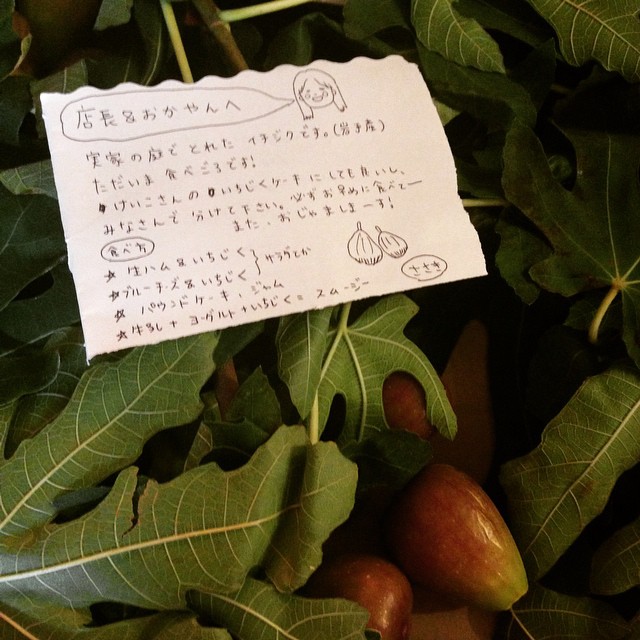 店長&おかやんへ
実家の庭でとれた イチジクです。(岩手産)
ただいま 食べごろです!
けいこさんのいちじくケーキにしても良いし、
みなさんで分けて下さい。必ずお早めに食べてー
また、おじゃましまーす!
食べ方
★ 生ハム&いちじく
★ ブルーチーズ&いちじく
★ パウンドケーキ・ジャム
★ 牛乳+ヨーグルト+いちじく=スムージー